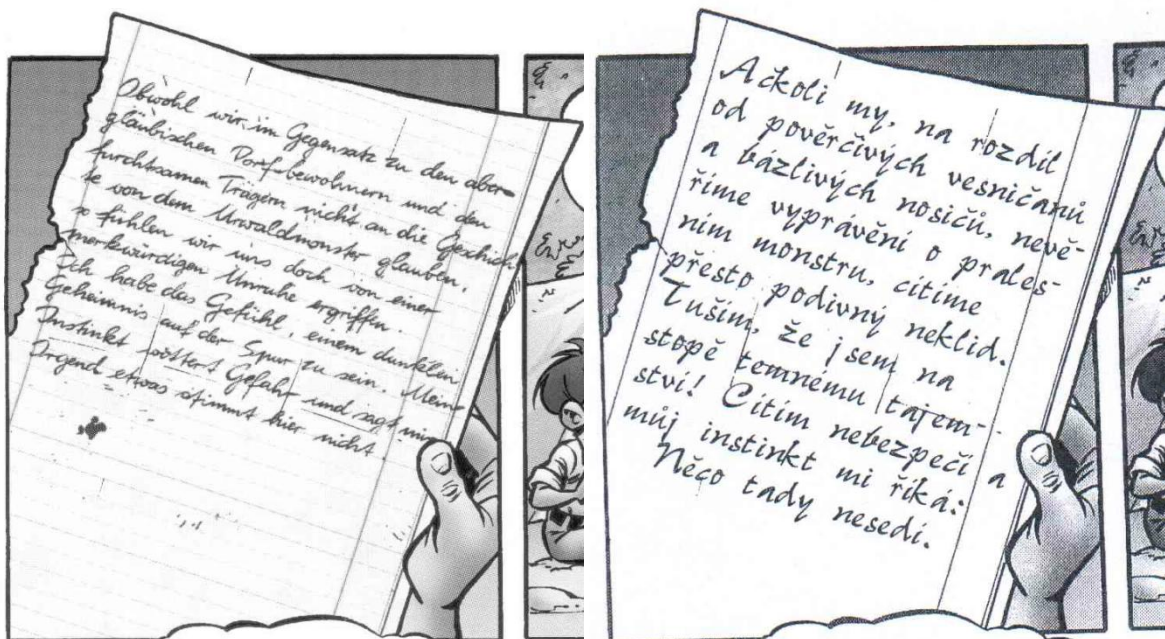 Obwohl wir im Gegensatz zu den aber-
gläubischen Dorfbewohnern und den
furchtsamen Trägern nicht an die Geschich-
te von dem Urwaldmonster glauben,
so fühlen wir uns doch von einer
merkwürdigen Unruhe ergriffen.
Ich habe das Gefühl, einem dunklen
Geheimnis auf der Spur zu sein. Mein
Instinkt wittert Gefahr und sagt mir
Irgend etwas stimmt hier nicht
Ačkoli my, na rozdíl
od pověrčivých vesničanů
a bázlivých nosičů, nevě-
říme vyprávění o prales-
ním monstru, cítíme
přesto podivný neklid.
Tuším, že jsem na
stopě temnému tajem-
ství! Cítím nebezpečí a
můj instinkt mi říká:
Něco tady nesedí.